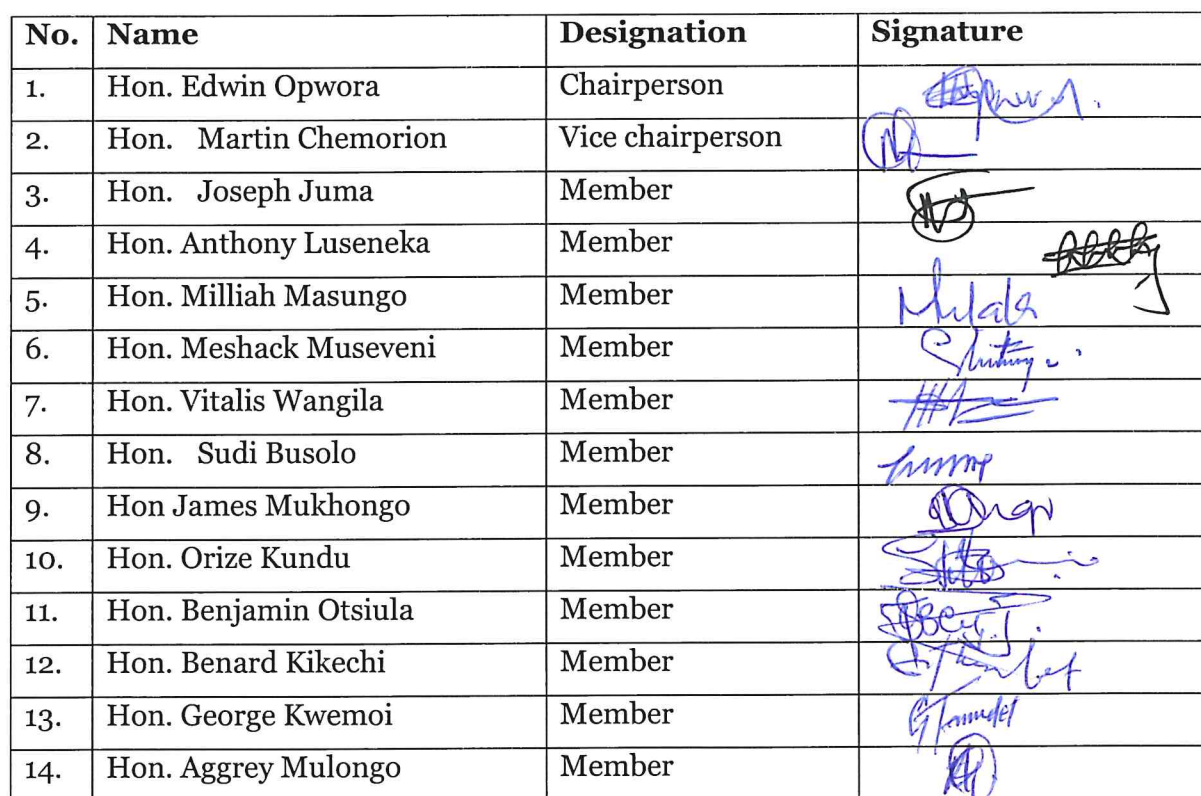 No. Name Designation Signature
1. Hon. Edwin Opwora Chairperson
2. Hon. Martin Chemorion Vice chairperson
3. Hon. Joseph Juma Member
4. Hon. Anthony Luseneka Member
5. Hon. Milliah Masungo Member
6. Hon. Meshack Museveni Member
7. Hon. Vitalis Wangila Member
8. Hon. Sudi Busolo Member
9. Hon James Mukhongo Member
10. Hon. Orize Kundu Member
11. Hon. Benjamin Otsiula Member
12. Hon. Benard Kikechi Member
13. Hon. George Kwemoi Member
14. Hon. Aggrey Mulongo Member